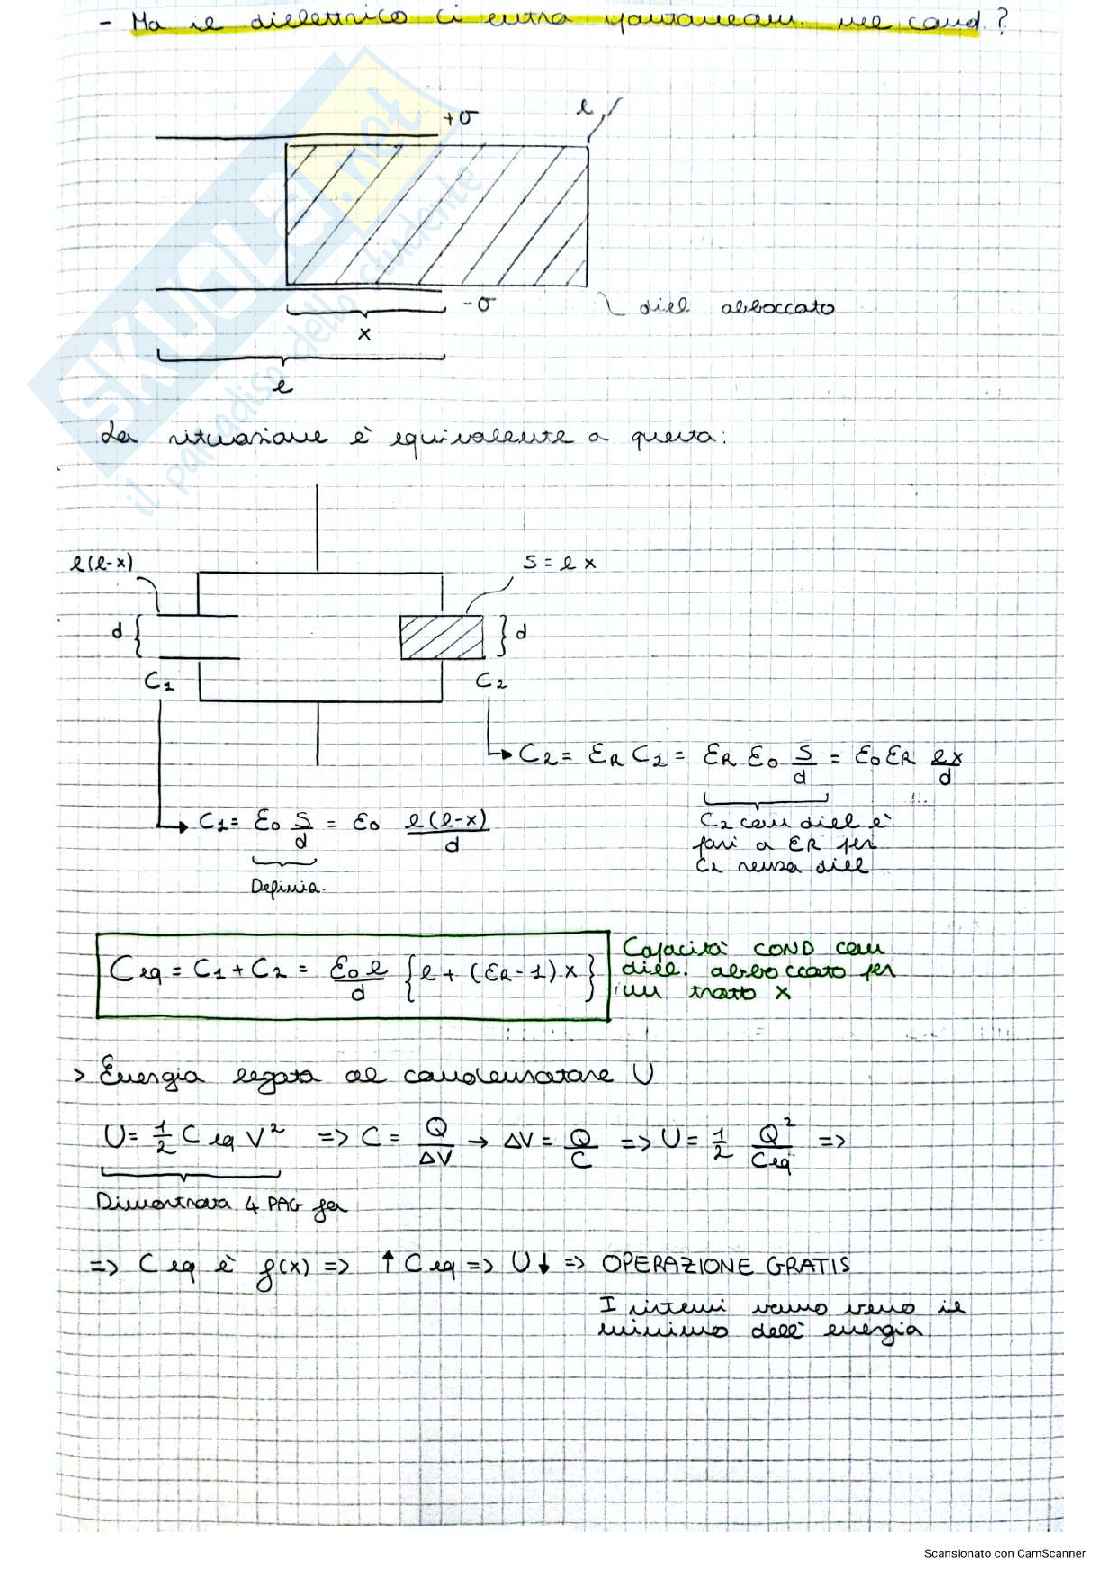 - Ma il dielettrico ci entra spontaneam. nel cond.?
+σ
l
-σ
diel abboccato
x
l
La situazione è equivalente a questa:
l(l-x)
S = l x
d
d
C1
C2
C2 = εR C2 = εR ε0 S/d = ε0 εR lx/d
C1 = ε0 S/d = ε0 l(l-x)/d
C2 con diel è
pari a εR per
C2 senza diel
Definiz.
Ceq = C1 + C2 = ε0 l/d {l + (εR-1)x}
Capacità COND con
diel. abboccato per
un tratto x
> Energia legata al condensatore U
U = 1/2 Ceq V² => C = Q/ΔV → ΔV = Q/C => U = 1/2 Q²/Ceq =>
Dimostrata 4 PAG fa
=> Ceq è f(x) => ↑ Ceq => U↓ => OPERAZIONE GRATIS
I sistemi vanno verso il
minimo dell'energia
SKUOLA.net
il paradiso dello studente
Scansionato con CamScanner